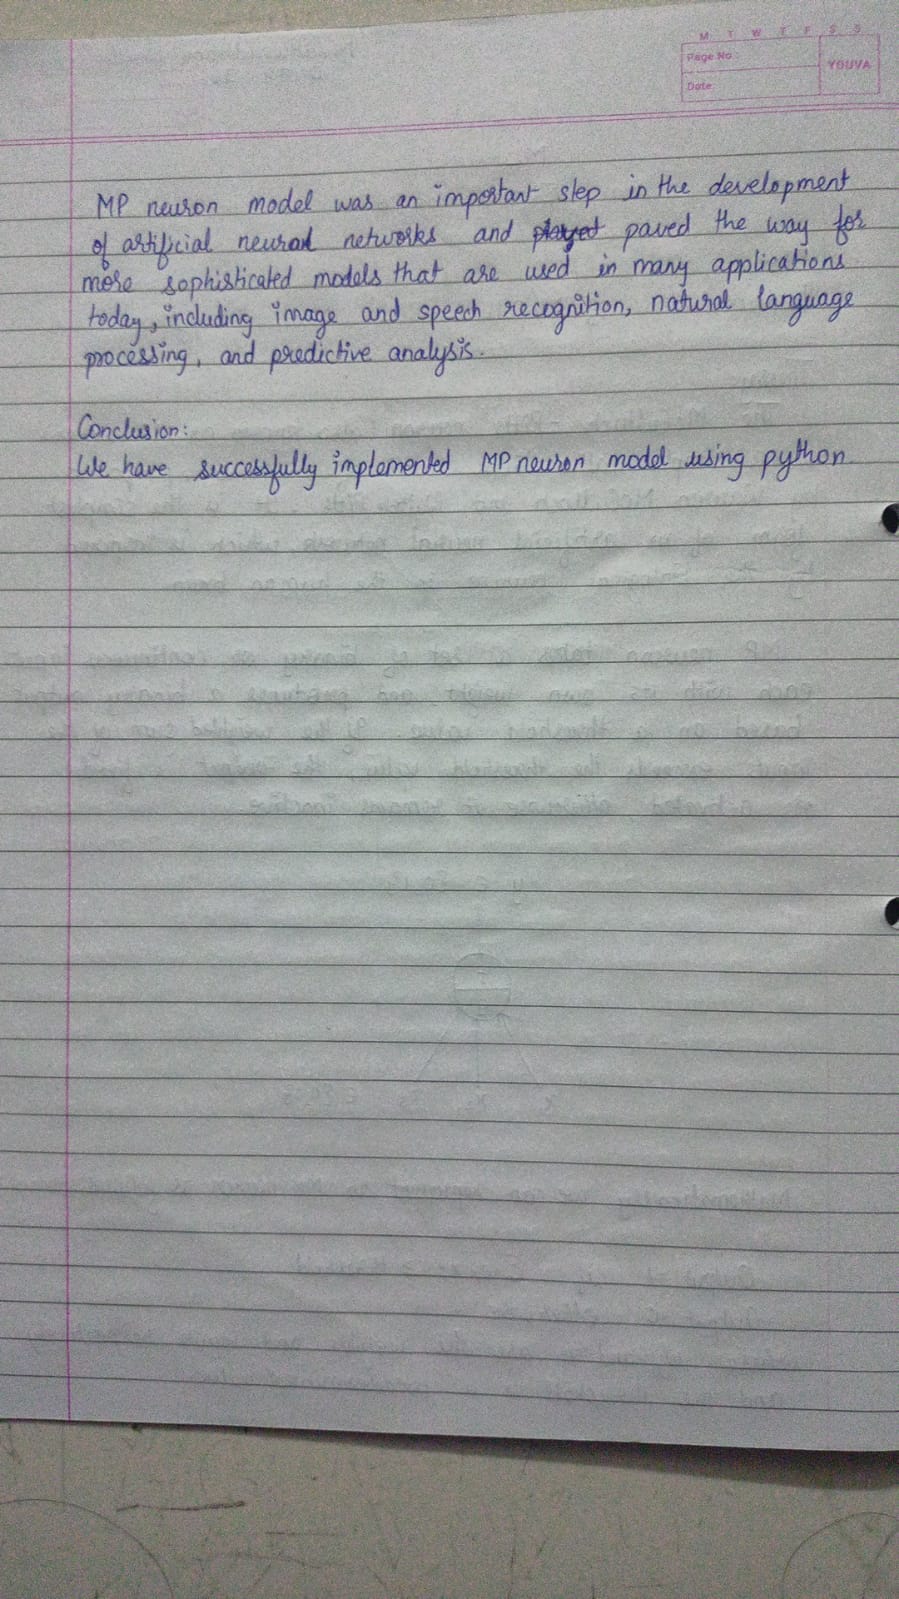 M T W T F S S
Page No.:
YOUVA
Date:
MP neuron model was an important step in the development
of artificial neural networks and played paved the way for
more sophisticated models that are used in many applications
today, including image and speech recognition, natural language
processing, and predictive analysis.
Conclusion:
We have successfully implemented MP neuron model using python